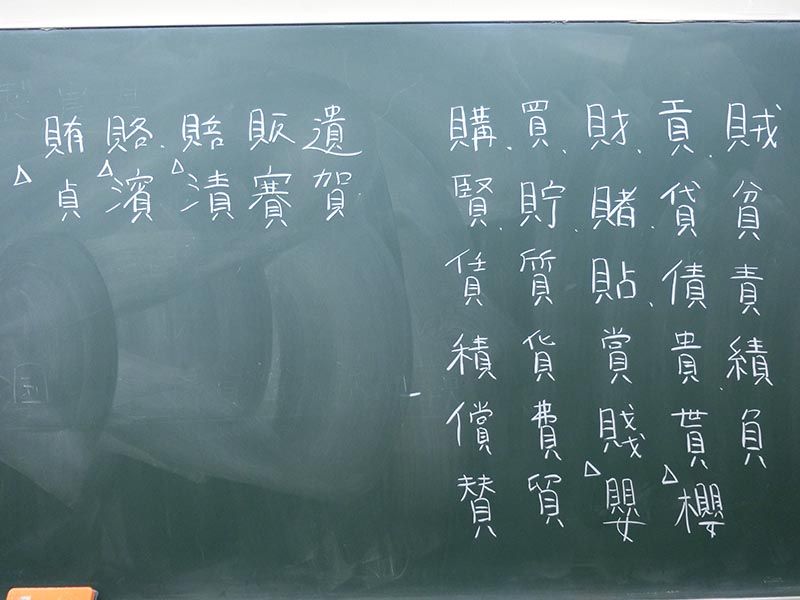 賊貧責績負
貢、貸債貴貰△櫻
財、賭、貼、賞賤△嬰
買、貯、質貨費貿
購、賢、賃積償賛
遺賀
販賽
賠△漬
賂、△濱
賄△貞